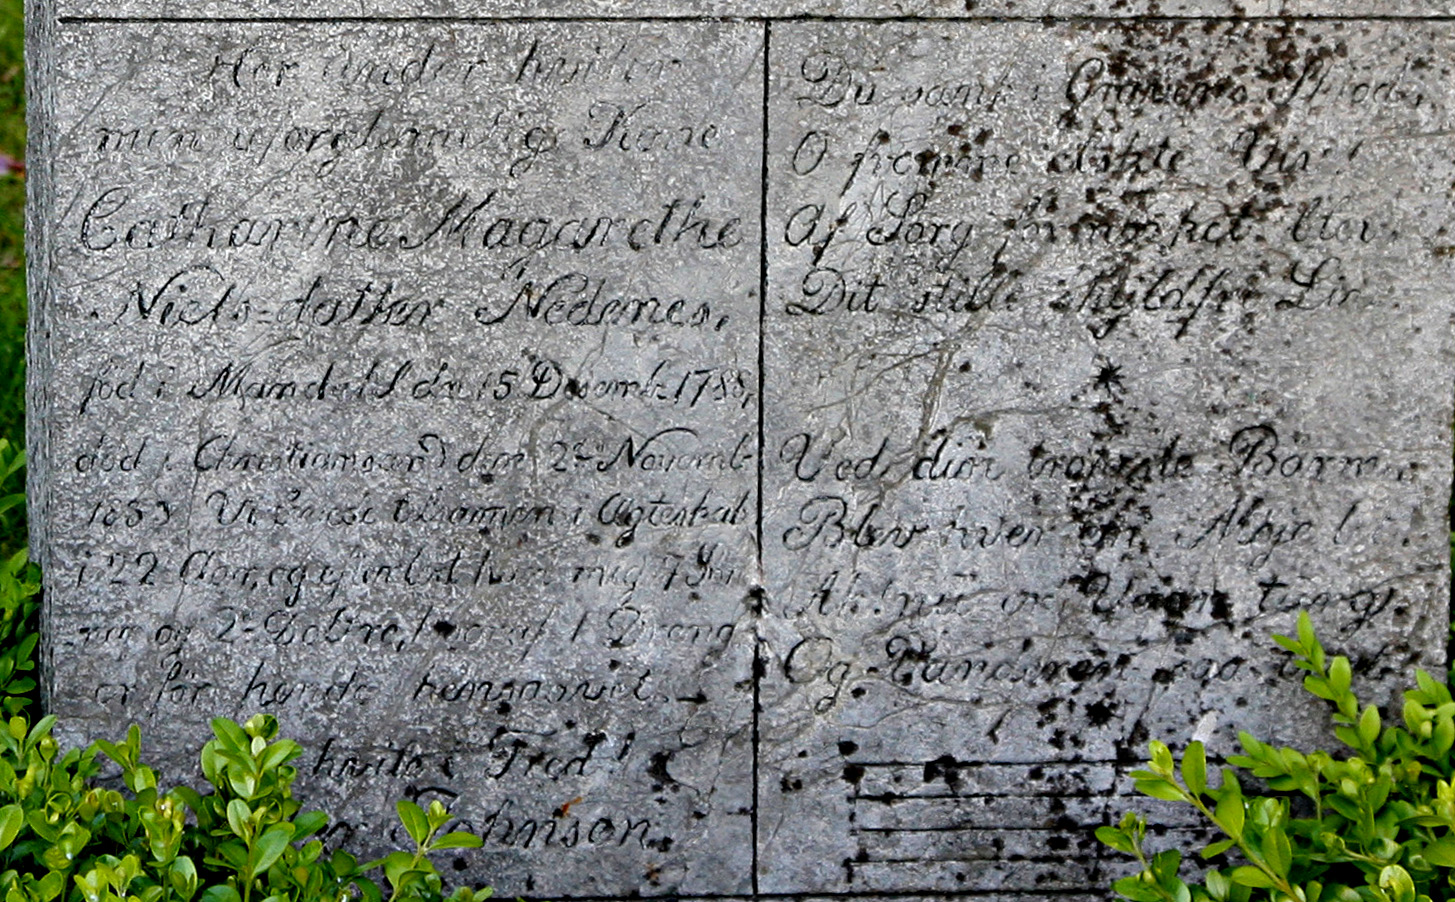 Her under hviler
min uforglemmelige Kone
Catharine Magarethe
Niels=datter Nedenes,
föd i Mandal d. 15 Desemb. 1788,
död i Christiansand den 2de Novemb.
1853 Vi levede tilsammen i Ægteskab
i 22 Aar, og efterlod hun mig 7 Sön
ner og 2 Döttre, hvoraf 1 Dreng
er för hende hensovet.
hvile i Fred!
Johnson.
Du sank i Gravens Skiød,
O fromme elskte Viv!
Af Sorg formørket blev
Dit stille skyldfri Liv.
Ved din Barm
Blev hver en Møje
Ak! nu er
Og Vandreren